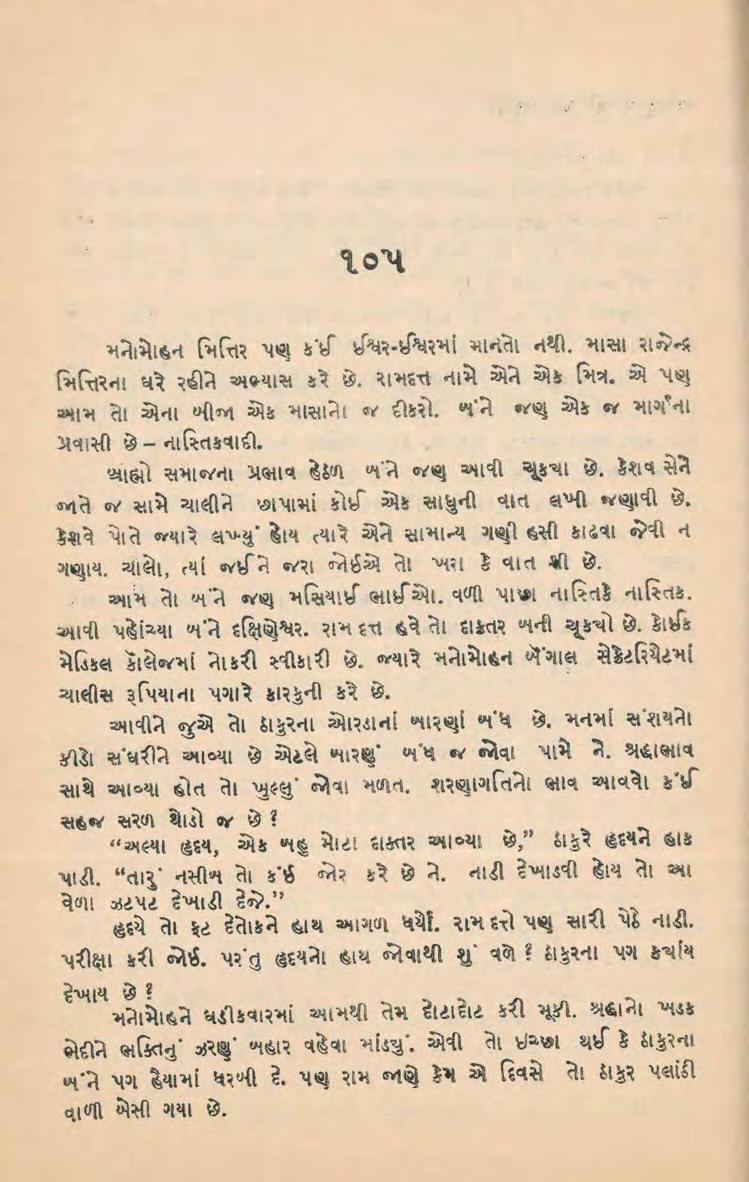 ૧૦૫
મનોમોહન મિત્તિર પણ કંઈ ઈશ્વર-ઈશ્વરમાં માનતો નથી. માસા રાજેન્દ્ર
મિત્તિરના ઘરે રહીને અભ્યાસ કરે છે. રામદત્ત નામે એને એક મિત્ર. એ પણ
આમ તો એના બીજા એક માસાનો જ દીકરો. બંને જણ એક જ માર્ગના
પ્રવાસી છે – નાસ્તિકવાદી.
બ્રાહ્મો સમાજના પ્રભાવ હેઠળ બંને જણ આવી ચૂકયા છે. કેશવ સેને
જાતે જ સામે ચાલીને છાપામાં કોઈ એક સાધુની વાત લખી જણાવી છે.
કેશવે પોતે જ્યારે લખ્યું હોય ત્યારે એને સામાન્ય ગણી હસી કાઢવા જેવી ન
ગણાય. ચાલો, ત્યાં જઈને જરા જોઈએ તો ખરા કે વાત શી છે.
આમ તો બંને જણ મસિયાઈ ભાઈઓ. વળી પાછા નાસ્તિકે નાસ્તિક.
આવી પહોંચ્યા બંને દક્ષિણેશ્વર. રામ દત્ત હવે તો દાકતર બની ચૂકયો છે. કોઈક
મેડિકલ કૉલેજમાં નોકરી સ્વીકારી છે. જ્યારે મનોમોહન બેંગાલ સેક્રેટરિયેટમાં
ચાલીસ રૂપિયાના પગારે કારકુની કરે છે.
આવીને જુએ તો ઠાકુરના ઓરડાનાં બારણાં બંધ છે. મનમાં સંશયનો
કીડો સંઘરીને આવ્યા છે એટલે બારણું બંધ જ જોવા પામે ને. શ્રદ્ધાભાવ
સાથે આવ્યા હોત તો ખુલ્લું જોવા મળત. શરણાગતિનો ભાવ આવવો કંઈ
સહજ સરળ થોડો જ છે ?
“અલ્યા હૃદય, એક બહુ મોટા ડાક્તર આવ્યા છે,” ઠાકુરે હૃદયને હાક
પાડી. “તારું નસીબ તો કંઈ જોર કરે છે ને. નાડી દેખાડવી હોય તો આ
વેળા ઝટપટ દેખાડી દેજે.”
હૃદયે તો ફટ દેતોકને હાથ આગળ ધર્યો. રામ દત્તે પણ સારી પેઠે નાડી.
પરીક્ષા કરી જોઈ. પરંતુ હૃદયનો હાથ જોવાથી શું વળે ? ઠાકુરના પગ કયાંય
દેખાય છે ?
મનોમોહને ઘડીકવારમાં આમથી તેમ દોટાદોટ કરી મૂકી. શ્રદ્ધાનો ખડક
ભેદીને ભક્તિનું ઝરણું બહાર વહેવા માંડયું. એવી તો ઇચ્છા થઈ કે ઠાકુરના
બંને પગ હૈયામાં ધરબી દે. પણ રામ જાણે કેમ એ દિવસે તો ઠાકુર પલાંઠી
વાળી બેસી ગયા છે.